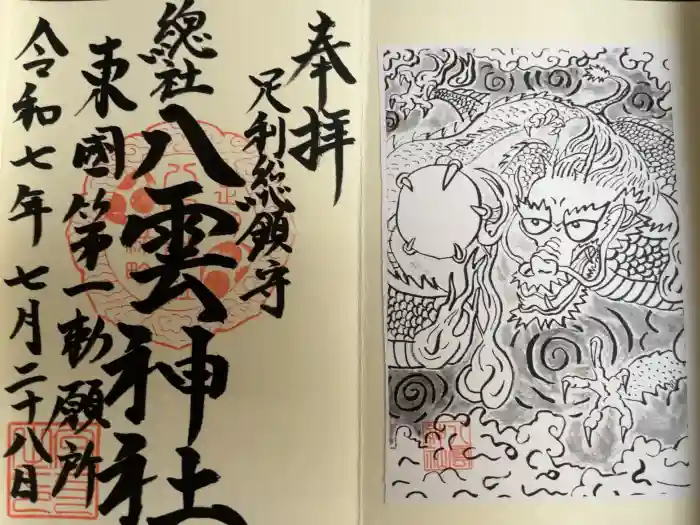 奉拝
足利総領守
總社
八雲神社
東國第一勅願所
令和七年七月二十八日